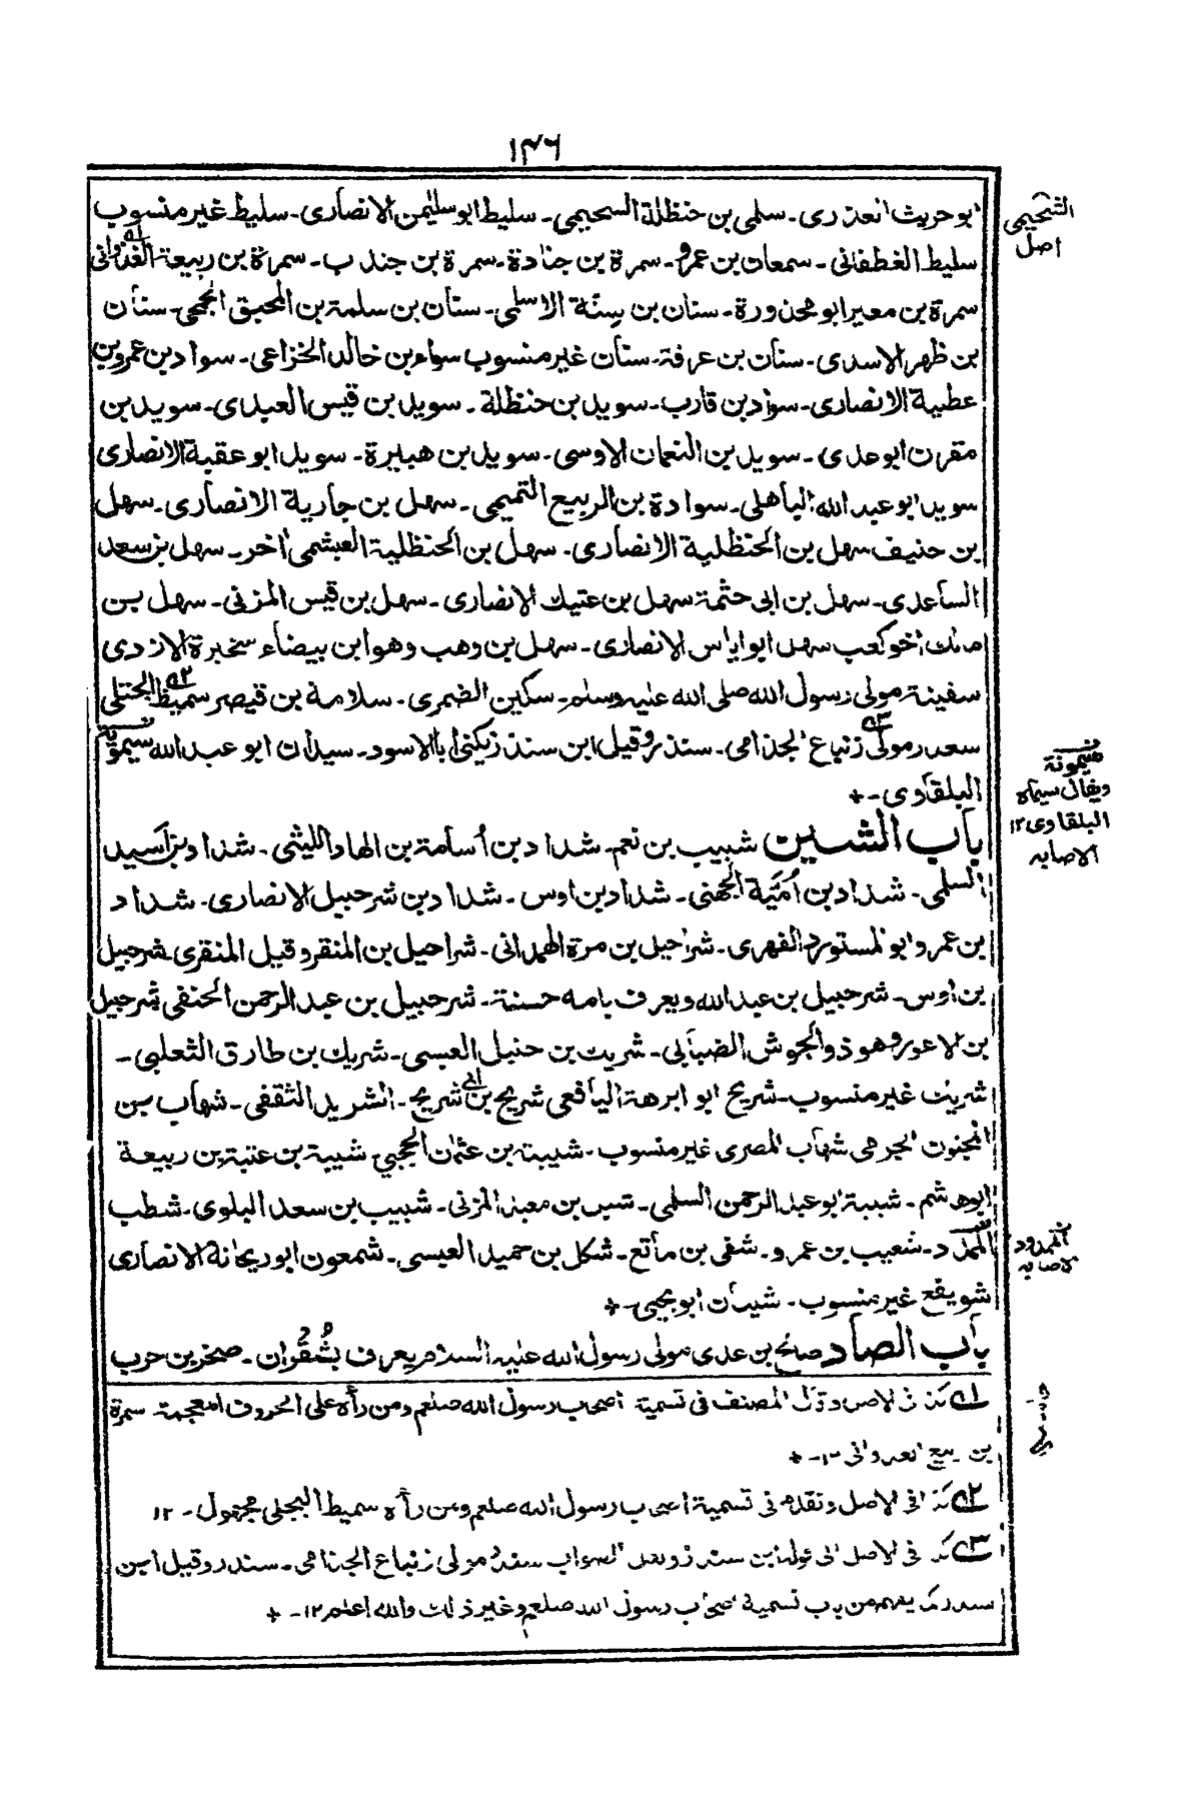 ١٤٦
ابو حريث العذرى - سلمى بن حنظلة السحيمي - سليط ابو سليمن الانصارى - سليط غير منسوب
سليط الغطفانى - سمعان بن عمرو - سمرة بن جنادة - سمرة بن جندب - سمرة بن ربيعة العدوانى
سمرة بن معير ابو محذورة - سنان بن سنة الاسلمى - سنان بن سلمة بن المحبق الجمحى - سنان
بن ظهر الاسدى - سنان بن عرفة - سنان غير منسوب سواء بن خالد الخزاعى - سواد بن عمرو بن
عطية الانصارى - سواد بن قارب - سويد بن حنظلة - سويد بن قيس العبدى - سويد بن
مقرن ابو عدى - سويد بن النعمان الاوسى - سويد بن هبيرة - سويد ابو عقبة الانصارى
سويد ابو عبد الله الباهلى - سوادة بن الربيع التميمى - سهل بن جارية الانصارى - سهل
بن حنيف سهل بن الحنظلية الانصارى - سهل بن الحنظلية العبشمى اخر - سهل بن سعد
الساعدى - سهل بن ابى حثمة سهل بن عتيك الانصارى - سهل بن قيس المزنى - سهل بن
مالك اخو كعب سهل ابو اياس الانصارى - سهل بن وهب وهو ابن بيضاء سخبرة الازدى
سفينة مولى رسول الله صلى الله عليه وسلم - سكين الضمرى - سلامة بن قيصر سميط البجلى
سعدر مولى زنباع الجذامى - سندر وقيل ابن سندر يكنى ابا الاسود - سيدان ابو عبد الله سيمويه
البلقاوى - +
باب الشين شبيب بن نعم - شداد بن أسامة بن الهاد الليثى - شداد بن أسيد
السلمى - شداد بن أمية الجهنى - شداد بن اوس - شداد بن شرحبيل الانصارى - شداد
بن عمرو ابو المستورد الفهرى - شراحيل بن مرة الهمدانى - شراحيل بن المنقر وقيل المنقرى شرحبيل
بن اوس - شرحبيل بن عبد الله ويعرف بامه حسنة - شرحبيل بن عبد الرحمن الحنفى شرحبيل
بن الاعور وهو ذو الجوشن الضبابى - شريك بن حنبل العبسى - شريك بن طارق الثعلبى -
شريك غير منسوب - شريح ابو ابرهة اليافعى شريح بن ابى شريح - الشريد الثقفى - شهاب بن
المجنون الجرمى شهاب المصرى غير منسوب - شيبة بن عثمان الحجبى شيبة بن عتبة بن ربيعة
ابو هاشم - شيبة ابو عبد الرحمن السلمى - شبيب بن سعد البلوى - شطب
الممدود - شعيب بن عمرو - شفى بن ماتع - شكل بن حميد العبسى - شمعون ابو ريحانة الانصارى
شويفع غير منسوب - شيبان ابو يحيى - +
باب الصاد صالح بن عدى مولى رسول الله عليه السلام يعرف بشقران - صخر بن حرب
له١ كذا فى الاصل وقال المصنف فى تسمية اصحاب رسول الله صلعم ومن رأه على الحروف المعجمة سمرة
بن ربيع العدوانى ١٢ - +
له٢ كذا فى الاصل وتقدم فى تسمية اصحاب رسول الله صلعم ومن رأه سميط البجلى مجهول - ١٢
له٣ كذا فى الاصل الى قوله ابن سندر ولعل الصواب سندر مولى زنباع الجذامى - سندر وقيل ابن
سندر كما يفهم من باب تسمية اصحاب رسول الله صلعم وغير ذلك والله اعلم ١٢ - +
الشحيمى
اصل
سيمونة
ويقال سيماه
البلقاوى ١٢
الاصابه
الممدود
الاصابه